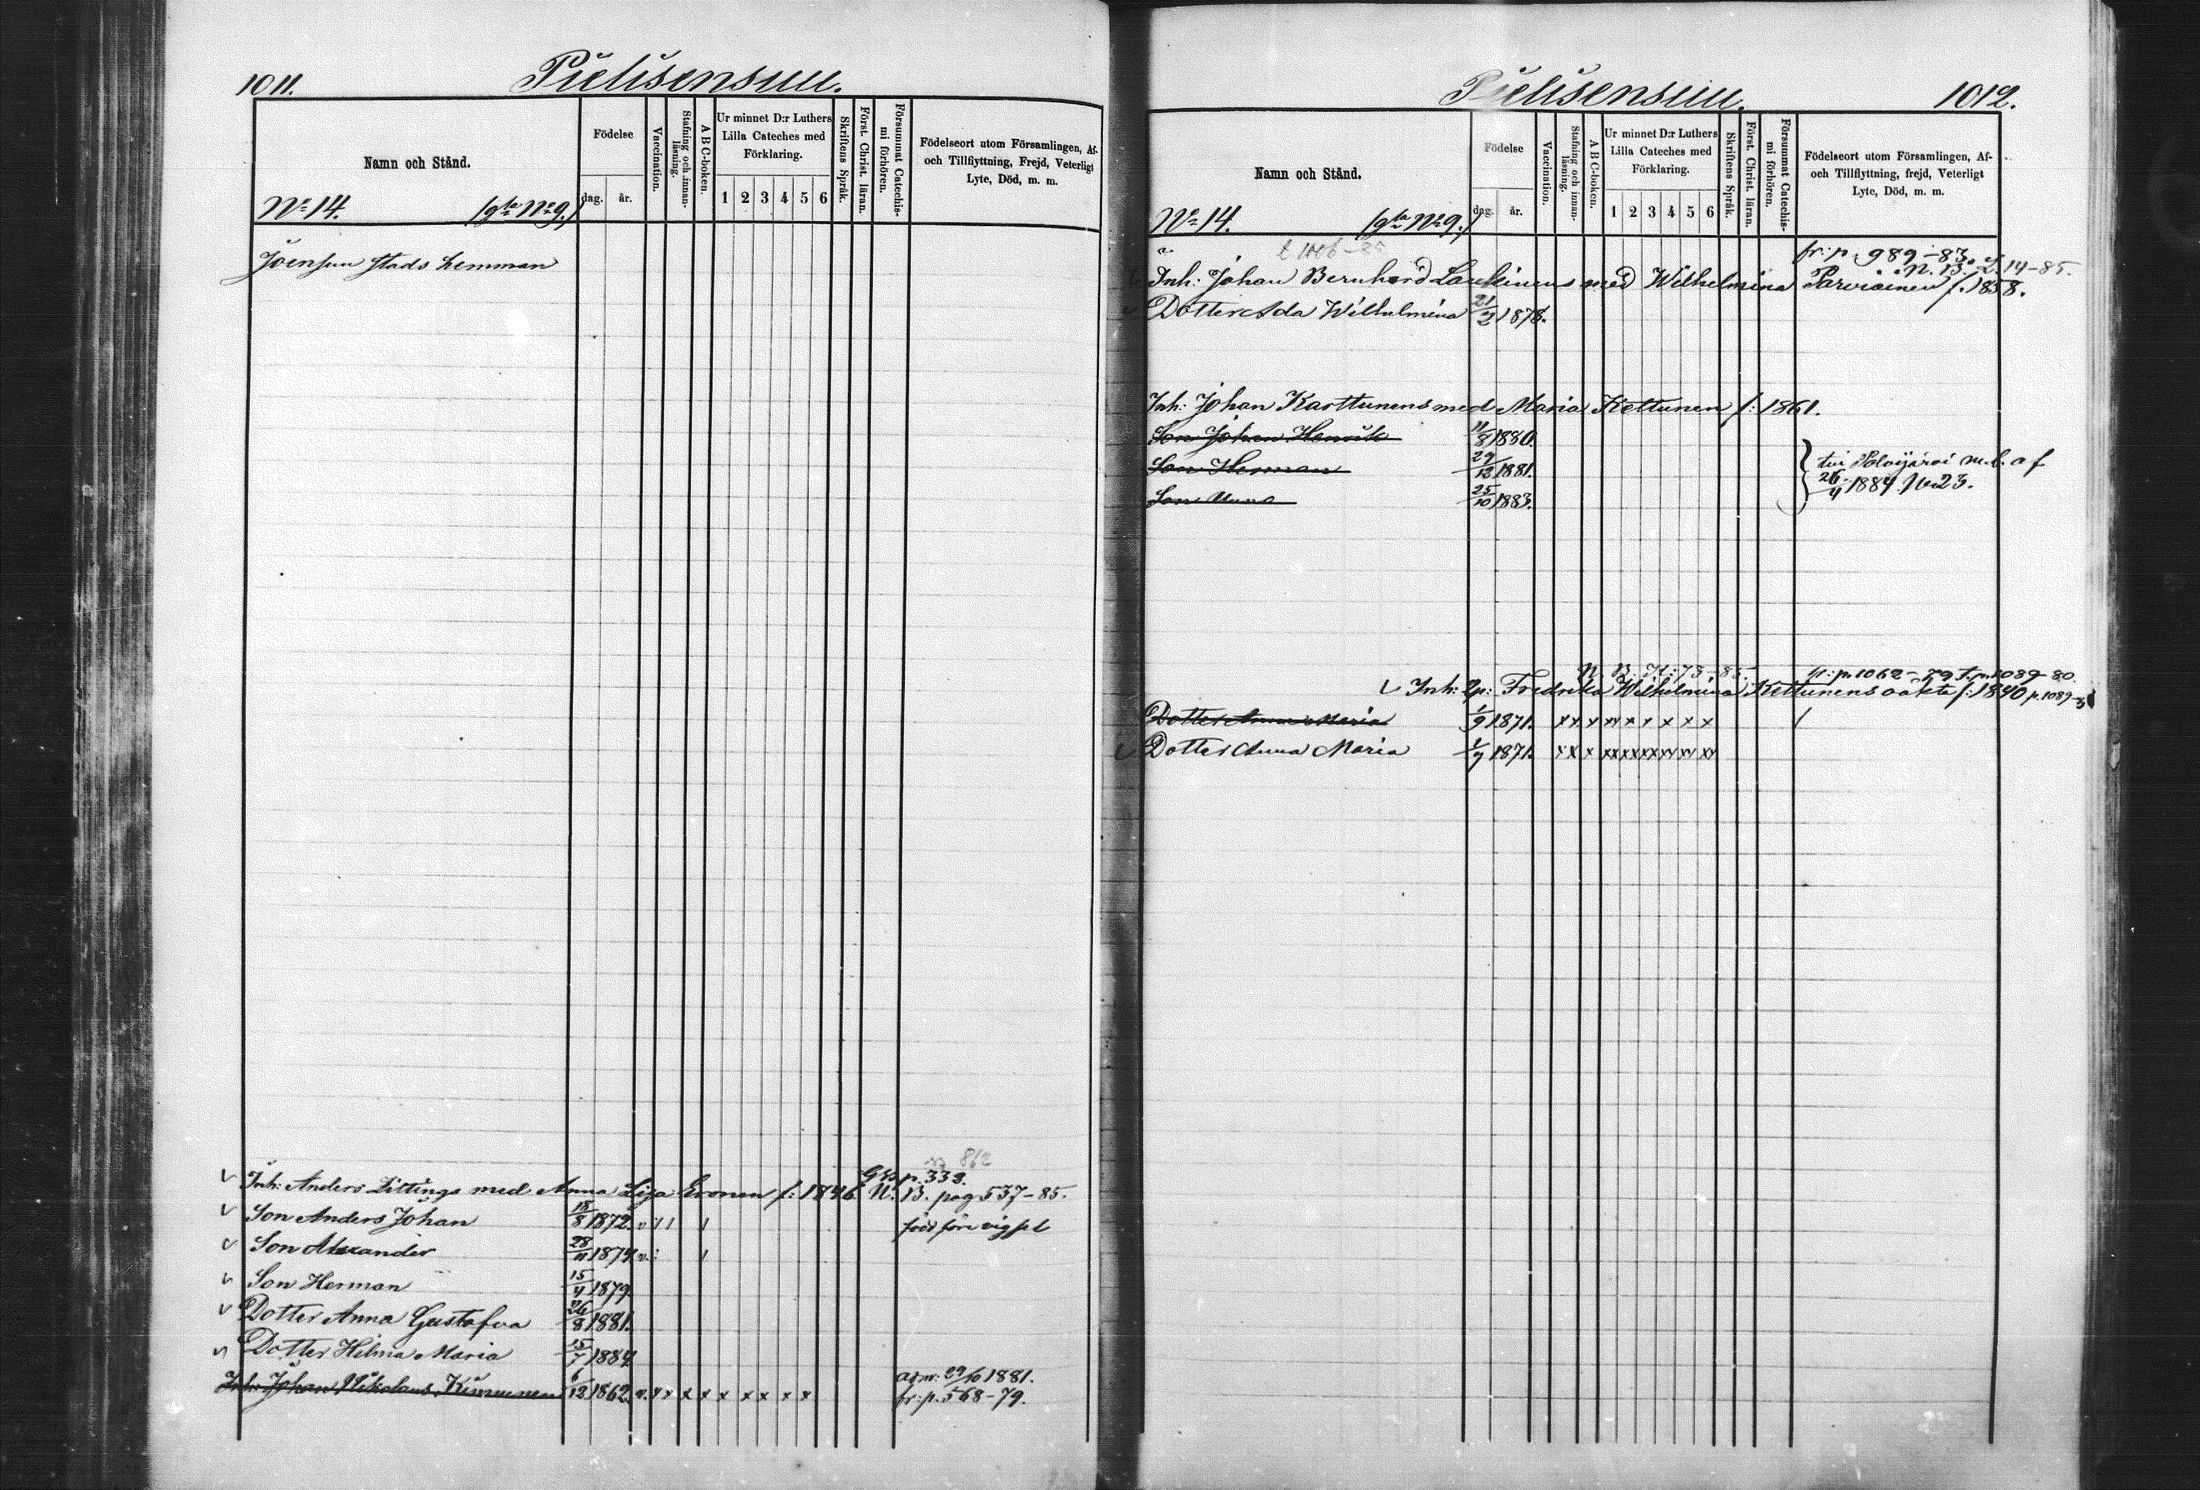 1011.
Pielisensuu.
Namn och Stånd.
Födelse
dag.
år.
Vaccination.
Stafning och innan-
läsning.
A B C-boken.
Ur minnet D:r Luthers
Lilla Cateches med
Förklaring.
1 2 3 4 5 6
Skriftens Språk.
Först. Christ. läran.
Försummat Catechis-
mi förhören.
Födelseort utom Församlingen, Af-
och Tillflyttning, Frejd, Veterligt
Lyte, Död, m. m.
No 14. (g:la No 9.)
Joensuu stads hemman
862
p. 333.
Inh: Anders Littings med Anna Lisa Eronen f: 1846. N. B. pag 537-85.
Son Anders Johan 18/8 1872. v / / / född före vigsel
Son Alexander 28/11 1874 v. /
Son Herman 15/4 1879
Dotter Anna Gustafva 26/8 1881.
Dotter Hilma Maria 15/7 1884
Inh: Johan Nikolaus Kinnunen 6/12 1862. v. x x x x x x x x x
29/10 1881.
fr: p. 568-79.
Pielisensuu.
1012.
Namn och Stånd.
Födelse
dag.
år.
Vaccination.
Stafning och innan-
läsning.
A B C-boken.
Ur minnet D:r Luthers
Lilla Cateches med
Förklaring.
1 2 3 4 5 6
Skriftens Språk.
Först. Christ. läran.
Försummat Catechis-
mi förhören.
Födelseort utom Församlingen, Af-
och Tillflyttning, frejd, Veterligt
Lyte, Död, m. m.
No 14. (g:la No 9.)
t 1006-85
fr: p. 989-83.
N. B. L. 14-85.
Inh: Johan Bernhard Laukinens med Wilhelmina Parviainen f. 1858.
Dotter Ada Wilhelmina 21/2 1878.
Inh: Johan Karttunens med Maria Kettunen f: 1861.
Son Johan Henrik 11/8 1880.
Son Herman 29/12 1881.
Son 25/10 1883.
till Polvijärvi m. b. af
26/4 1884 No 23.
N. B. K: 73-85.
fr: p. 1062-79 t. p. 1089-80.
Inh: Fredrika Wilhelmina Kettunens oäkta f: 1840 p. 1089-
Dotter Anna Maria 1/9 1871. x x x xx x x x x x /
Dotter Anna Maria 1/9 1871. x x x xx xx xx xx xx xx